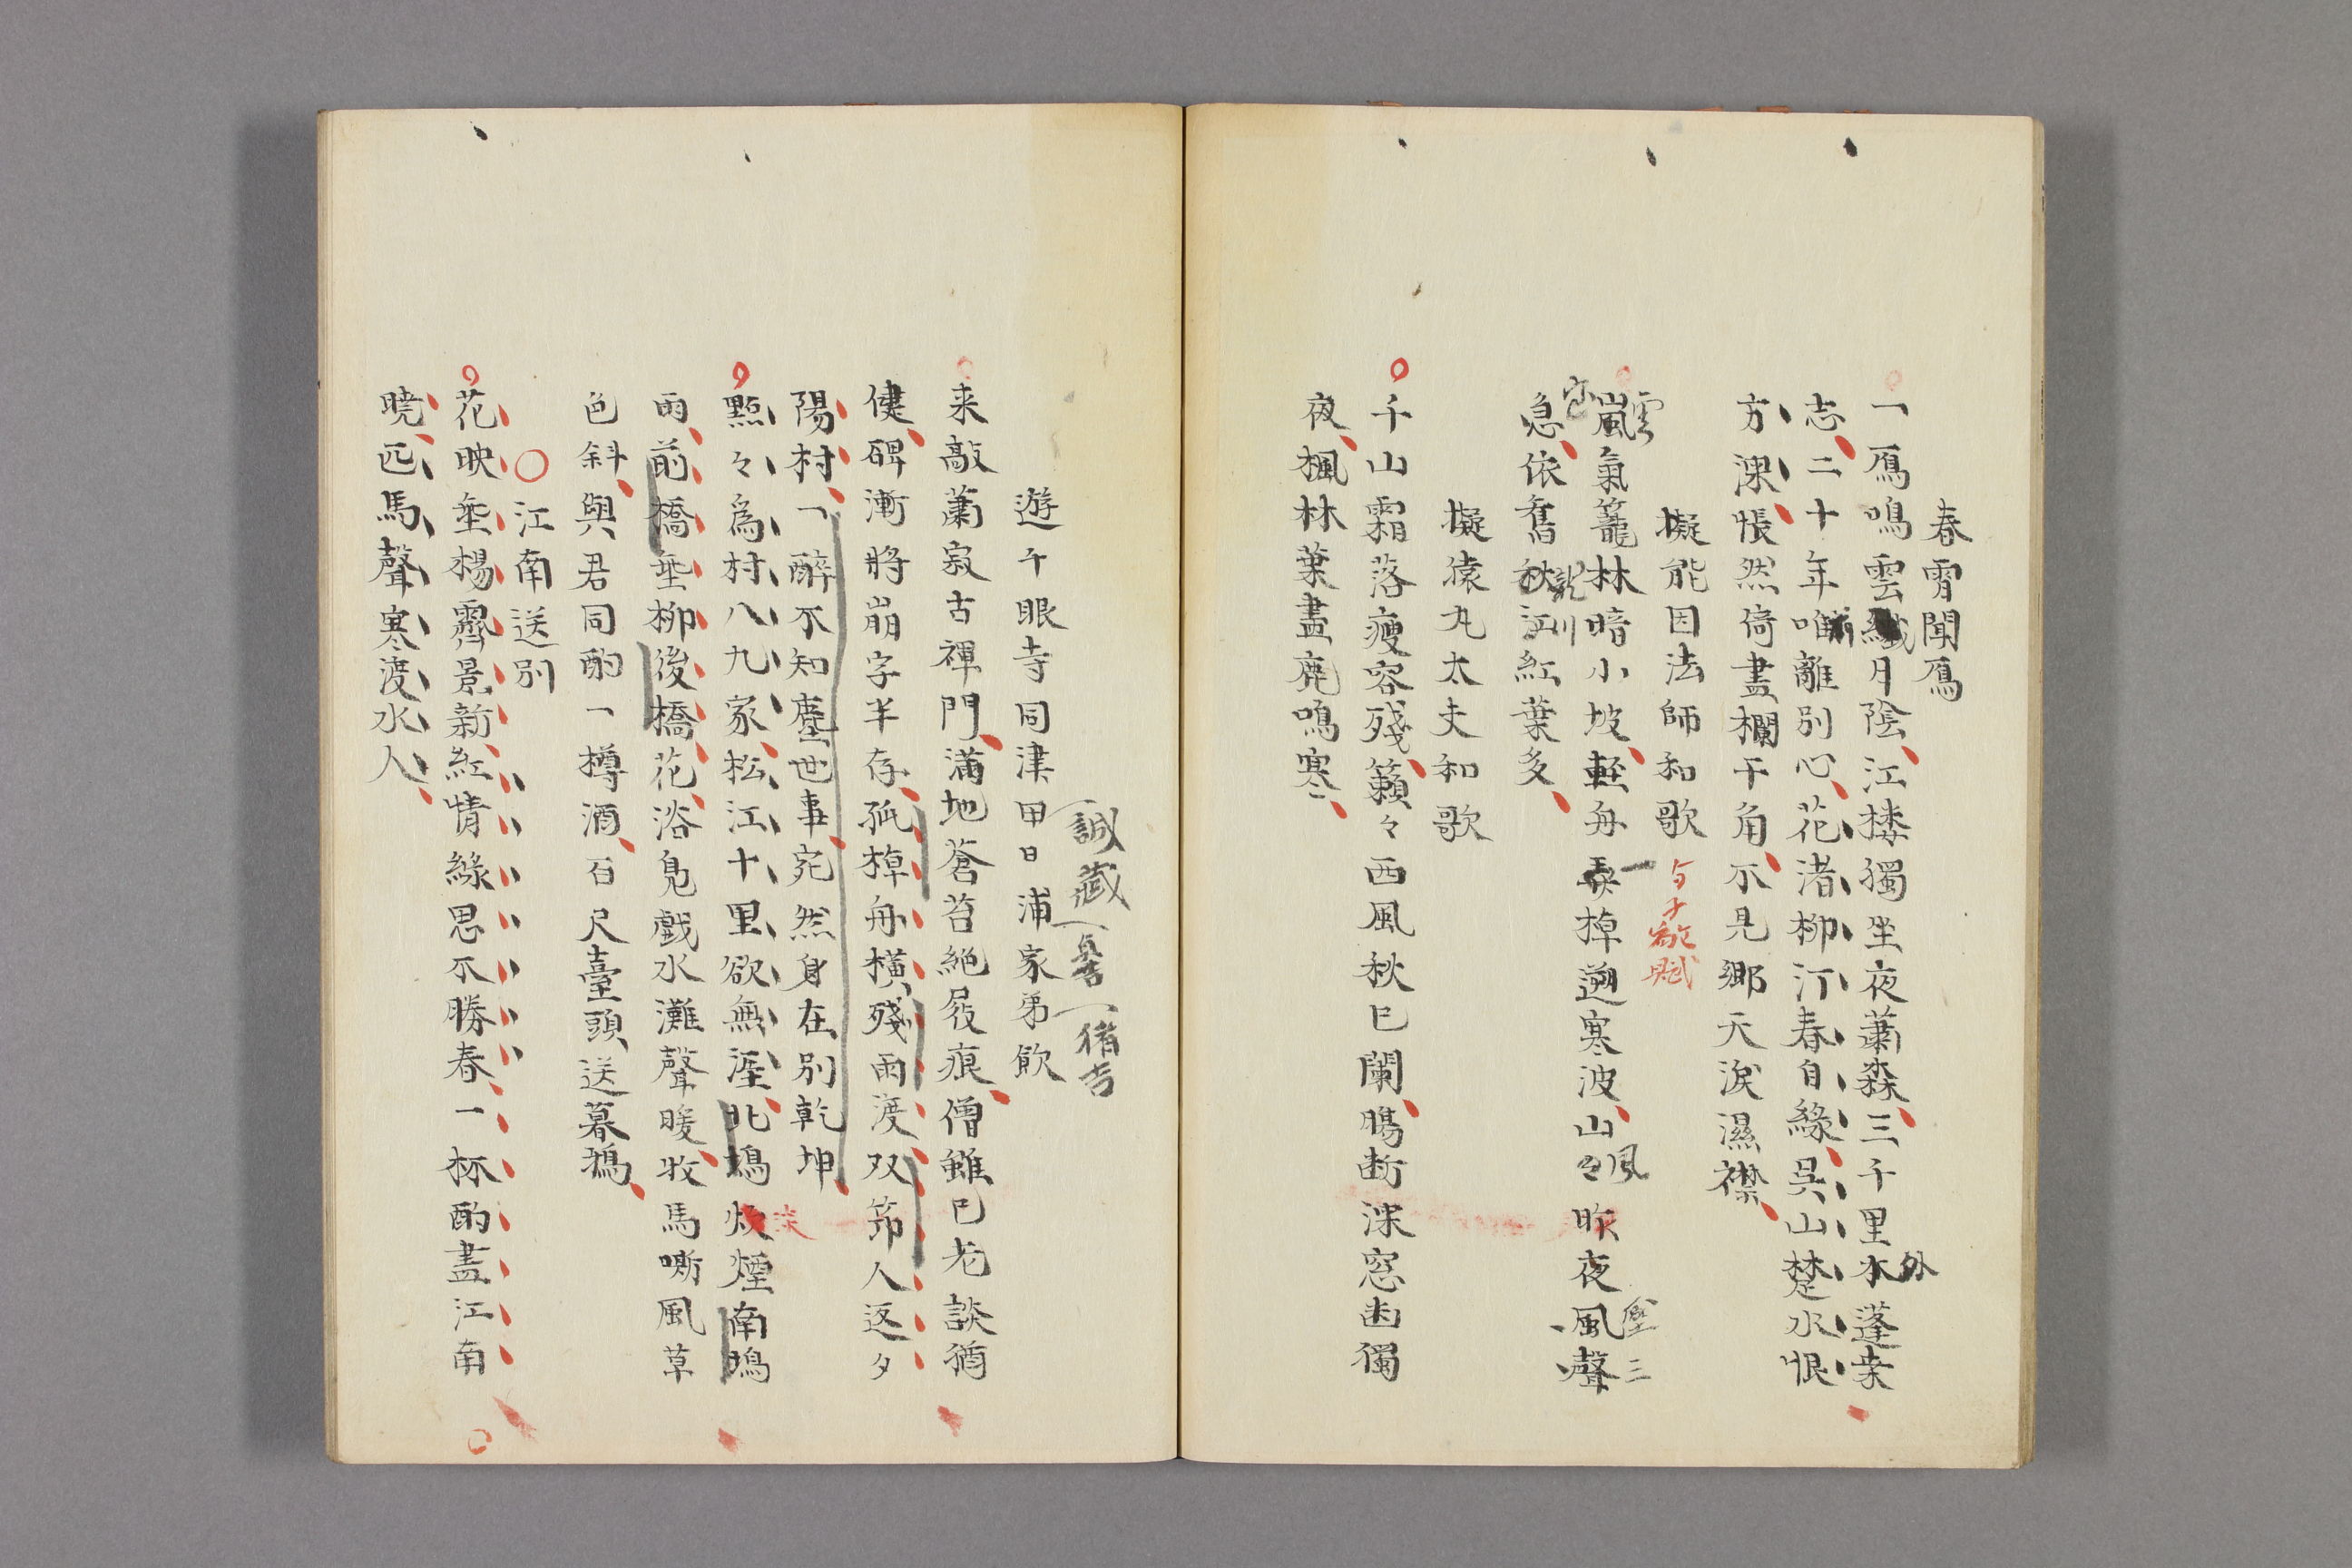 春霄聞鴈
一鴈鳴雲纖月陰江楼獨坐夜蕭森三千里水蓬来
外
志二十年唯離別心花渚柳汀春自緑呉山楚水恨
方深悵然倚盡欄干角不見郷天涙濕襟
擬能因法師和歌
嵐氣籠林暗小坡軽舟棹遡寒波山々昨夜風聲
雲
一
風
三
急依舊秋江紅葉多
擬猿丸太夫和歌
千山霜落痩容殘籟々西風秋已闌腸断深窓幽獨
夜楓林葉盡鹿鳴寒
誠藏
遊千眼寺同津田日浦家弟飲
来敲蕭寂古禅門満地蒼苔絶屐痕僧雖已老談猶
健碑漸將崩字半存孤棹舟横殘雨渡双笻人返夕
陽村一醉不知塵世事宛然身在別乾坤
點々為村八九家松江十里欲無涯北塢煙南塢
雨前橋垂柳後橋花浴鳬戯水灘聲暖牧馬嘶風草
色斜與君同酌一樽酒百尺臺頭送暮鴉
江南送別
花映垂楊霽景新紅情緑思不勝春一杯酌盡江南
曉匹馬聲寒渡水人